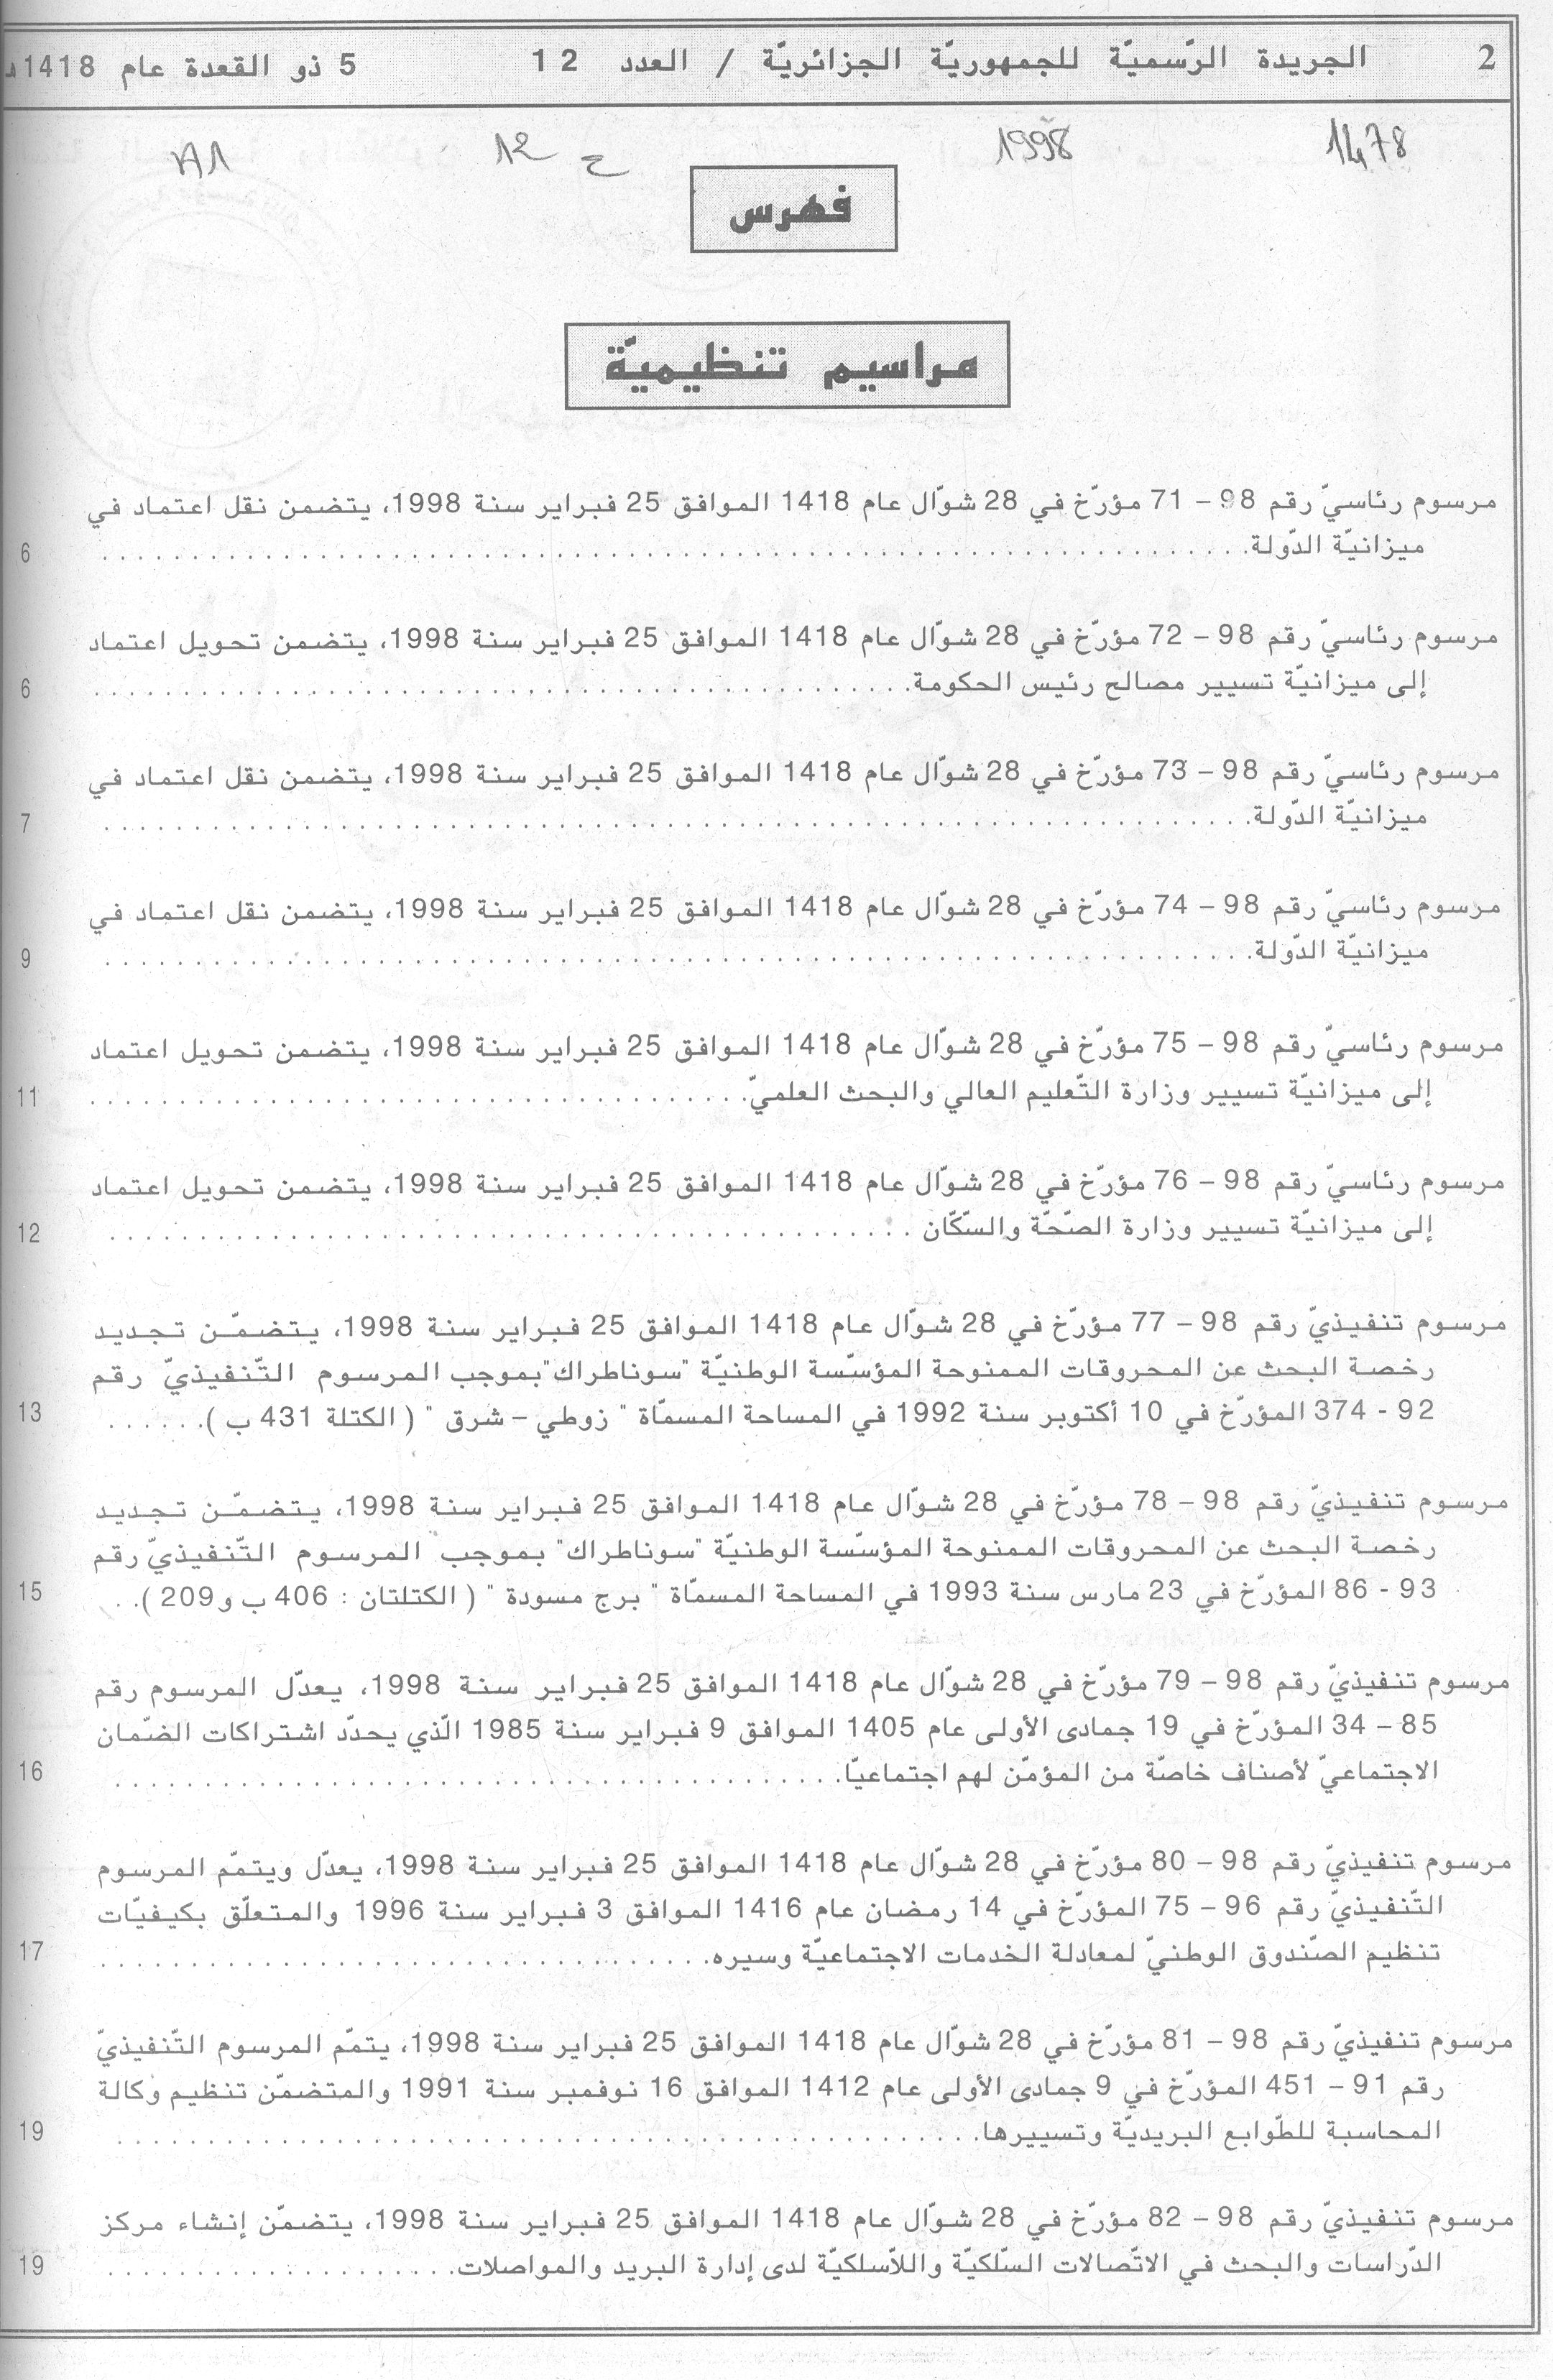 2 الجريدة الرّسميّة للجمهوريّة الجزائريّة / العدد 12 5 ذو القعدة عام 1418هـ
1478 1998 ج 12
فهرس
مراسيم تنظيميّة
مرسوم رئاسيّ رقم 98 – 71 مؤرّخ في 28 شوّال عام 1418 الموافق 25 فبراير سنة 1998، يتضمن نقل اعتماد في
ميزانيّة الدّولة. 6
مرسوم رئاسيّ رقم 98 – 72 مؤرّخ في 28 شوّال عام 1418 الموافق 25 فبراير سنة 1998، يتضمن تحويل اعتماد
إلى ميزانيّة تسيير مصالح رئيس الحكومة. 6
مرسوم رئاسيّ رقم 98 – 73 مؤرّخ في 28 شوّال عام 1418 الموافق 25 فبراير سنة 1998، يتضمن نقل اعتماد في
ميزانيّة الدّولة. 7
مرسوم رئاسيّ رقم 98 – 74 مؤرّخ في 28 شوّال عام 1418 الموافق 25 فبراير سنة 1998، يتضمن نقل اعتماد في
ميزانيّة الدّولة. 9
مرسوم رئاسيّ رقم 98 – 75 مؤرّخ في 28 شوّال عام 1418 الموافق 25 فبراير سنة 1998، يتضمن تحويل اعتماد
إلى ميزانيّة تسيير وزارة التّعليم العالي والبحث العلميّ. 11
مرسوم رئاسيّ رقم 98 – 76 مؤرّخ في 28 شوّال عام 1418 الموافق 25 فبراير سنة 1998، يتضمن تحويل اعتماد
إلى ميزانيّة تسيير وزارة الصّحّة والسّكّان 12
مرسوم تنفيذيّ رقم 98 – 77 مؤرّخ في 28 شوّال عام 1418 الموافق 25 فبراير سنة 1998، يتضمّن تجديد
رخصة البحث عن المحروقات الممنوحة المؤسّسة الوطنيّة "سوناطراك" بموجب المرسوم التّنفيذيّ رقم
92 - 374 المؤرّخ في 10 أكتوبر سنة 1992 في المساحة المسمّاة " زوطي – شرق " ( الكتلة 431 ب ). 13
مرسوم تنفيذيّ رقم 98 – 78 مؤرّخ في 28 شوّال عام 1418 الموافق 25 فبراير سنة 1998، يتضمّن تجديد
رخصة البحث عن المحروقات الممنوحة المؤسّسة الوطنيّة "سوناطراك" بموجب المرسوم التّنفيذيّ رقم
93 - 86 المؤرّخ في 23 مارس سنة 1993 في المساحة المسمّاة " برج مسودة " ( الكتلتان : 406 ب و209 ). 15
مرسوم تنفيذيّ رقم 98 – 79 مؤرّخ في 28 شوّال عام 1418 الموافق 25 فبراير سنة 1998، يعدّل المرسوم رقم
85 – 34 المؤرّخ في 19 جمادى الأولى عام 1405 الموافق 9 فبراير سنة 1985 الّذي يحدّد اشتراكات الضّمان
الاجتماعيّ لأصناف خاصّة من المؤمّن لهم اجتماعيّا. 16
مرسوم تنفيذيّ رقم 98 – 80 مؤرّخ في 28 شوّال عام 1418 الموافق 25 فبراير سنة 1998، يعدّل ويتمّم المرسوم
التّنفيذيّ رقم 96 – 75 المؤرّخ في 14 رمضان عام 1416 الموافق 3 فبراير سنة 1996 والمتعلّق بكيفيّات
تنظيم الصّندوق الوطنيّ لمعادلة الخدمات الاجتماعيّة وسيره. 17
مرسوم تنفيذيّ رقم 98 – 81 مؤرّخ في 28 شوّال عام 1418 الموافق 25 فبراير سنة 1998، يتمّم المرسوم التّنفيذيّ
رقم 91 – 451 المؤرّخ في 9 جمادى الأولى عام 1412 الموافق 16 نوفمبر سنة 1991 والمتضمّن تنظيم وكالة
المحاسبة للطّوابع البريديّة وتسييرها. 19
مرسوم تنفيذيّ رقم 98 – 82 مؤرّخ في 28 شوّال عام 1418 الموافق 25 فبراير سنة 1998، يتضمّن إنشاء مركز
الدّراسات والبحث في الاتّصالات السّلكيّة واللاّسلكيّة لدى إدارة البريد والمواصلات. 19